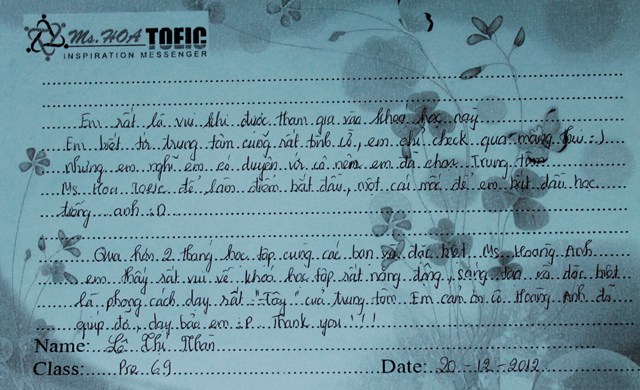 Ms. HOA TOEIC
INSPIRATION MESSENGER
Em rất là vui khi được tham gia vào khoá học này.
Em biết tới trung tâm cũng rất tình cờ, em chỉ check qua mạng thui :)
nhưng em nghĩ em có duyên với cô nên em đã chọn Trung tâm
Ms Hoa TOEIC để làm điểm bắt đầu, một cái mốc để em bắt đầu học
tiếng anh :D
Qua hơn 2 tháng học tập cùng các bạn và đặc biệt Ms. Hoàng Anh
em thấy rất vui về khoá học tập rất năng động, sáng tạo và đặc biệt
là phong cách dạy rất "Tây" của trung tâm. Em cảm ơn cô Hoàng Anh đã
giúp đỡ, dạy bảo em :P. Thank you!!!
Name: Lê Thị Nhàn
Class: Pre 69 Date: 20-12-2012